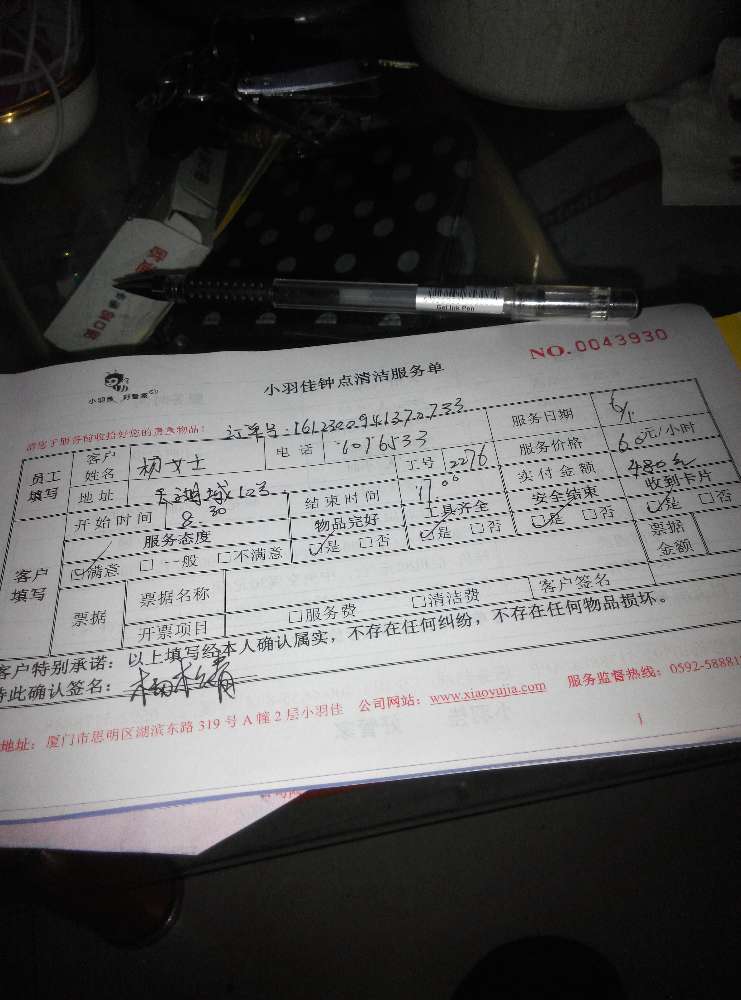 小羽佳 好管家
小羽佳钟点清洁服务单
NO.0043930
请您于服务前收拾好您的贵重物品!
订单号:16123009413720733
员工填写 客户姓名 杨女士 电话 6076533 服务日期
地址 工号 2276 服务价格 60元/小时
开始时间 8 30 结束时间 17 00 实付金额 480元
客户填写 服务态度 物品完好 工具齐全 安全结束 收到卡片
☑满意 □一般 □不满意 ☑是 □否 ☑是 □否 ☑是 □否 ☑是 □否
票据 票据名称 票据金额
开票项目 □服务费 □清洁费 客户签名
客户特别承诺:以上填写经本人确认属实,不存在任何纠纷,不存在任何物品损坏。
特此确认签名:
地址:厦门市思明区湖滨东路319号A幢2层小羽佳 公司网站:www.xiaoyujia.com 服务监督热线:0592-58881
1
Gel Ink Pen